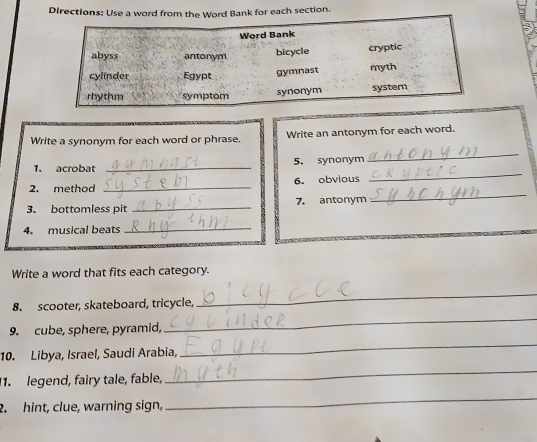 Directions: Use a word from the Word Bank for each section.
Word Bank
abyss antonym bicycle cryptic
cylinder Egypt gymnast myth
rhythm symptom synonym system
Write a synonym for each word or phrase.
1. acrobat gymnast
2. method system
3. bottomless pit abyss
4. musical beats Rhythm
Write an antonym for each word.
5. synonym antonym
6. obvious cRyptic
7. antonym synonym
Write a word that fits each category.
8. scooter, skateboard, tricycle, bicycle
9. cube, sphere, pyramid, cylindeR
10. Libya, Israel, Saudi Arabia, Egypt
1. legend, fairy tale, fable, myth
2. hint, clue, warning sign,